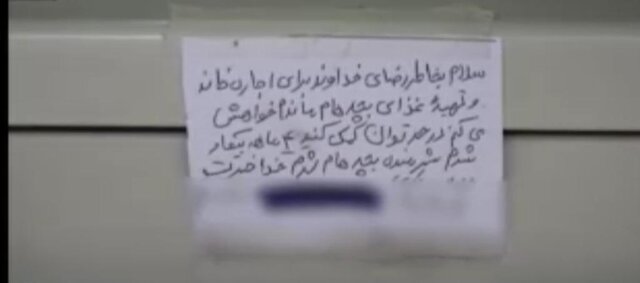 سلام بخاطر رضای خداوند برای اجاره خانه
و تهیه غذای بچه هام ماندم خواهش
می کنم در حد توان کمک کنید ۴ ماهه بیکار
شدم شرمنده بچه هام شدم خدا خیرت